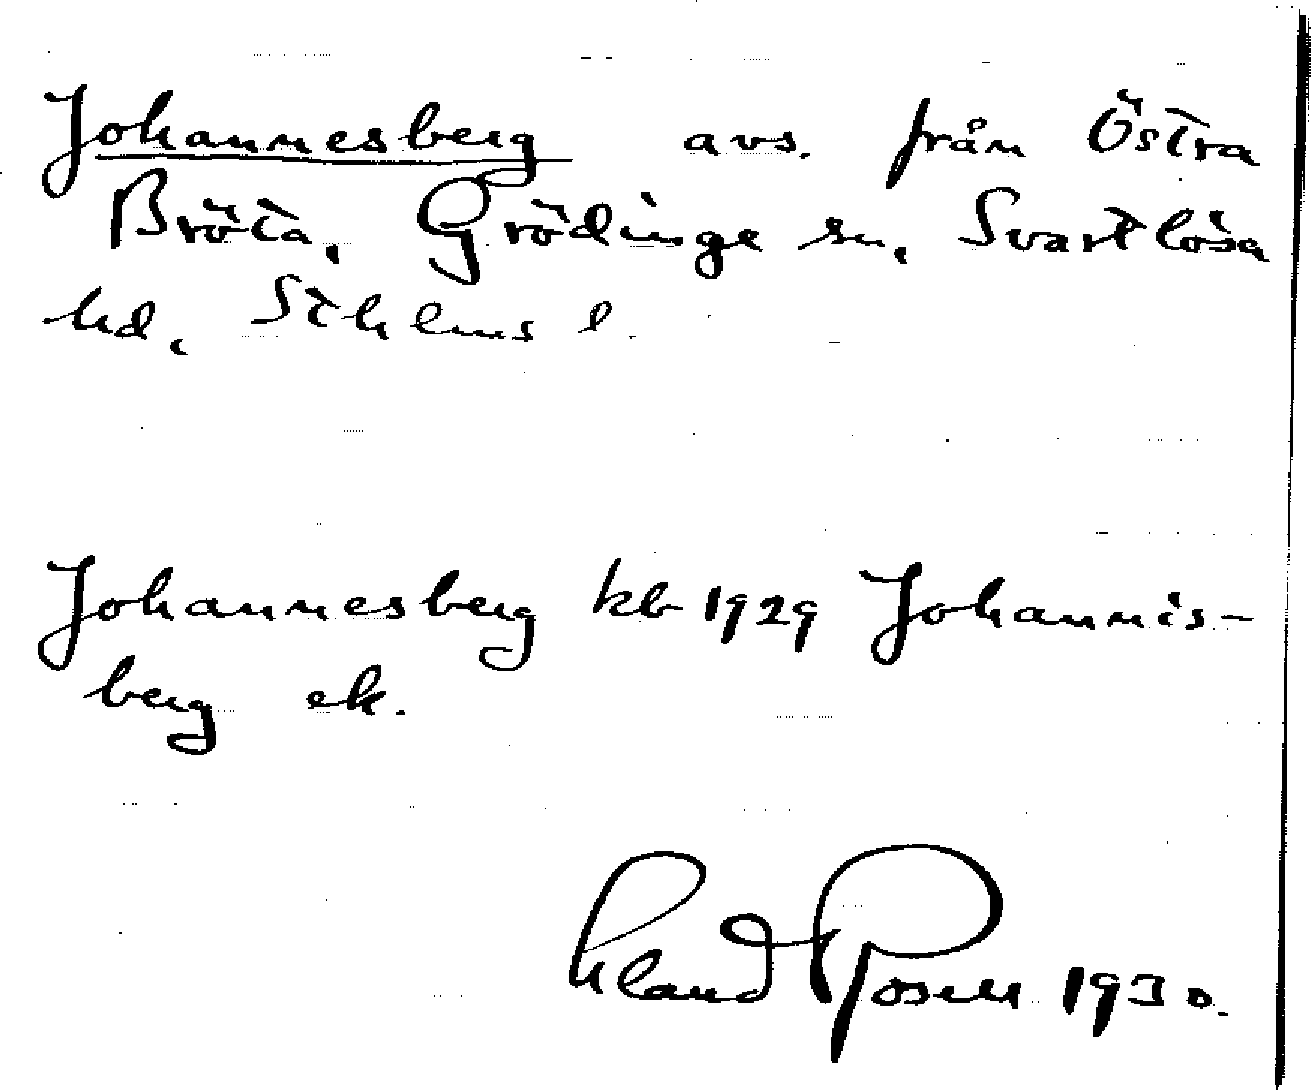 Johannesberg avs. från Östra
Bröta, Grödinge sn, Svartlösa
hd, Sthlms l.
Johannesberg kb 1929 Johannis-
berg ek.
Rosell 1930.